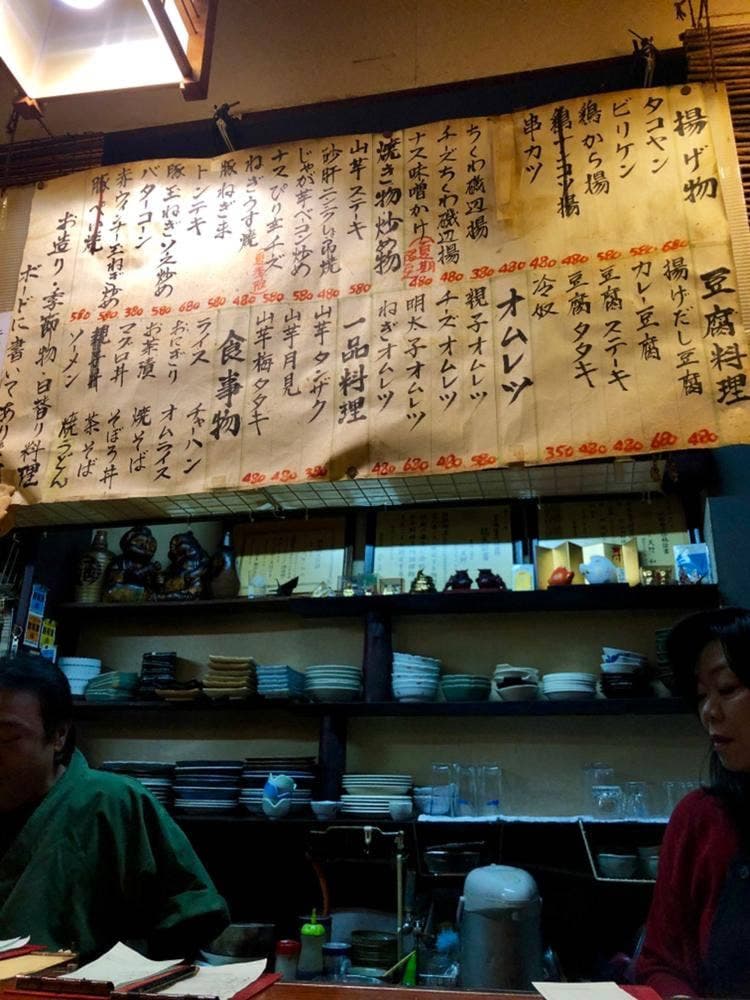 揚げ物
タコヤン 680
ビリケン 580
鶏から揚 580
串カツ 480
ちくわ磯辺揚 380
チーズちくわ磯辺揚 480
ナス味噌かけ 480
焼き物炒め物
山芋ステーキ 580
砂肝ニンニク串焼 480
じゃが芋ベーコン炒め 580
ナスぴり辛チーズ 580
ねぎうす焼 480
豚ねぎま 580
トンテキ 680
豚玉ねぎソース炒め 580
バターコーン 380
赤ウインナー玉ねぎ炒め 580
豚ペー焼 580
豆腐料理
揚げだし豆腐 480
カレー豆腐 680
豆腐ステーキ 480
豆腐タタキ 480
冷奴 350
オムレツ
親子オムレツ 580
チーズオムレツ 480
明太子オムレツ 680
ねぎオムレツ 480
一品料理
山芋タンザク 380
山芋月見 480
山芋梅タタキ 480
食事物
ライス チャーハン
おにぎり オムライス
お茶漬 焼そば
マグロ丼 そぼろ丼
親子丼 茶そば
ソーメン 焼うどん
お造り・季節物・日替り料理
ボードに書いてあり